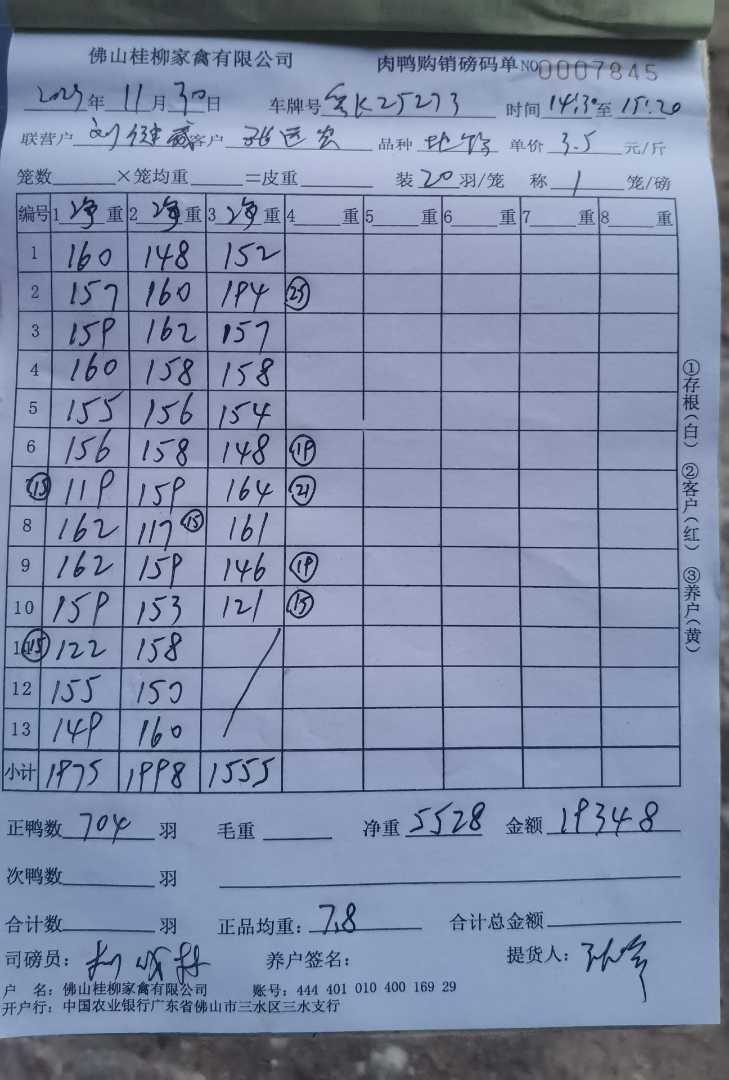 佛山桂柳家禽有限公司 肉鸭购销磅码单 NO 0007845
年 11 月 30 日 车牌号 K25273 时间 14:30 至 15:20
联营户 刘 客户 品种 单价 3.5 元/斤
笼数 ×笼均重 =皮重 装 20 羽/笼 称 1 笼/磅
编号 1 净 重 2 净 重 3 净 重 4 重 5 重 6 重 7 重 8 重
1 160 148 152
2 157 160 194 (25)
3 159 162 157
4 160 158 158
5 155 156 154
6 156 158 148 (19)
(15) 119 159 164 (21)
8 162 117 (15) 161
9 162 159 146 (19)
10 159 153 121 (15)
(15) 122 158
12 155 150
13 149 160
小计 1975 1998 1555
正鸭数 704 羽 毛重 净重 5528 金额 19348
次鸭数 羽
合计数 羽 正品均重: 7.8 合计总金额
司磅员: 养户签名: 提货人:
户 名: 佛山桂柳家禽有限公司 账号: 444 401 010 400 169 29
开户行: 中国农业银行广东省佛山市三水区三水支行
①存根(白) ②客户(红) ③养户(黄)